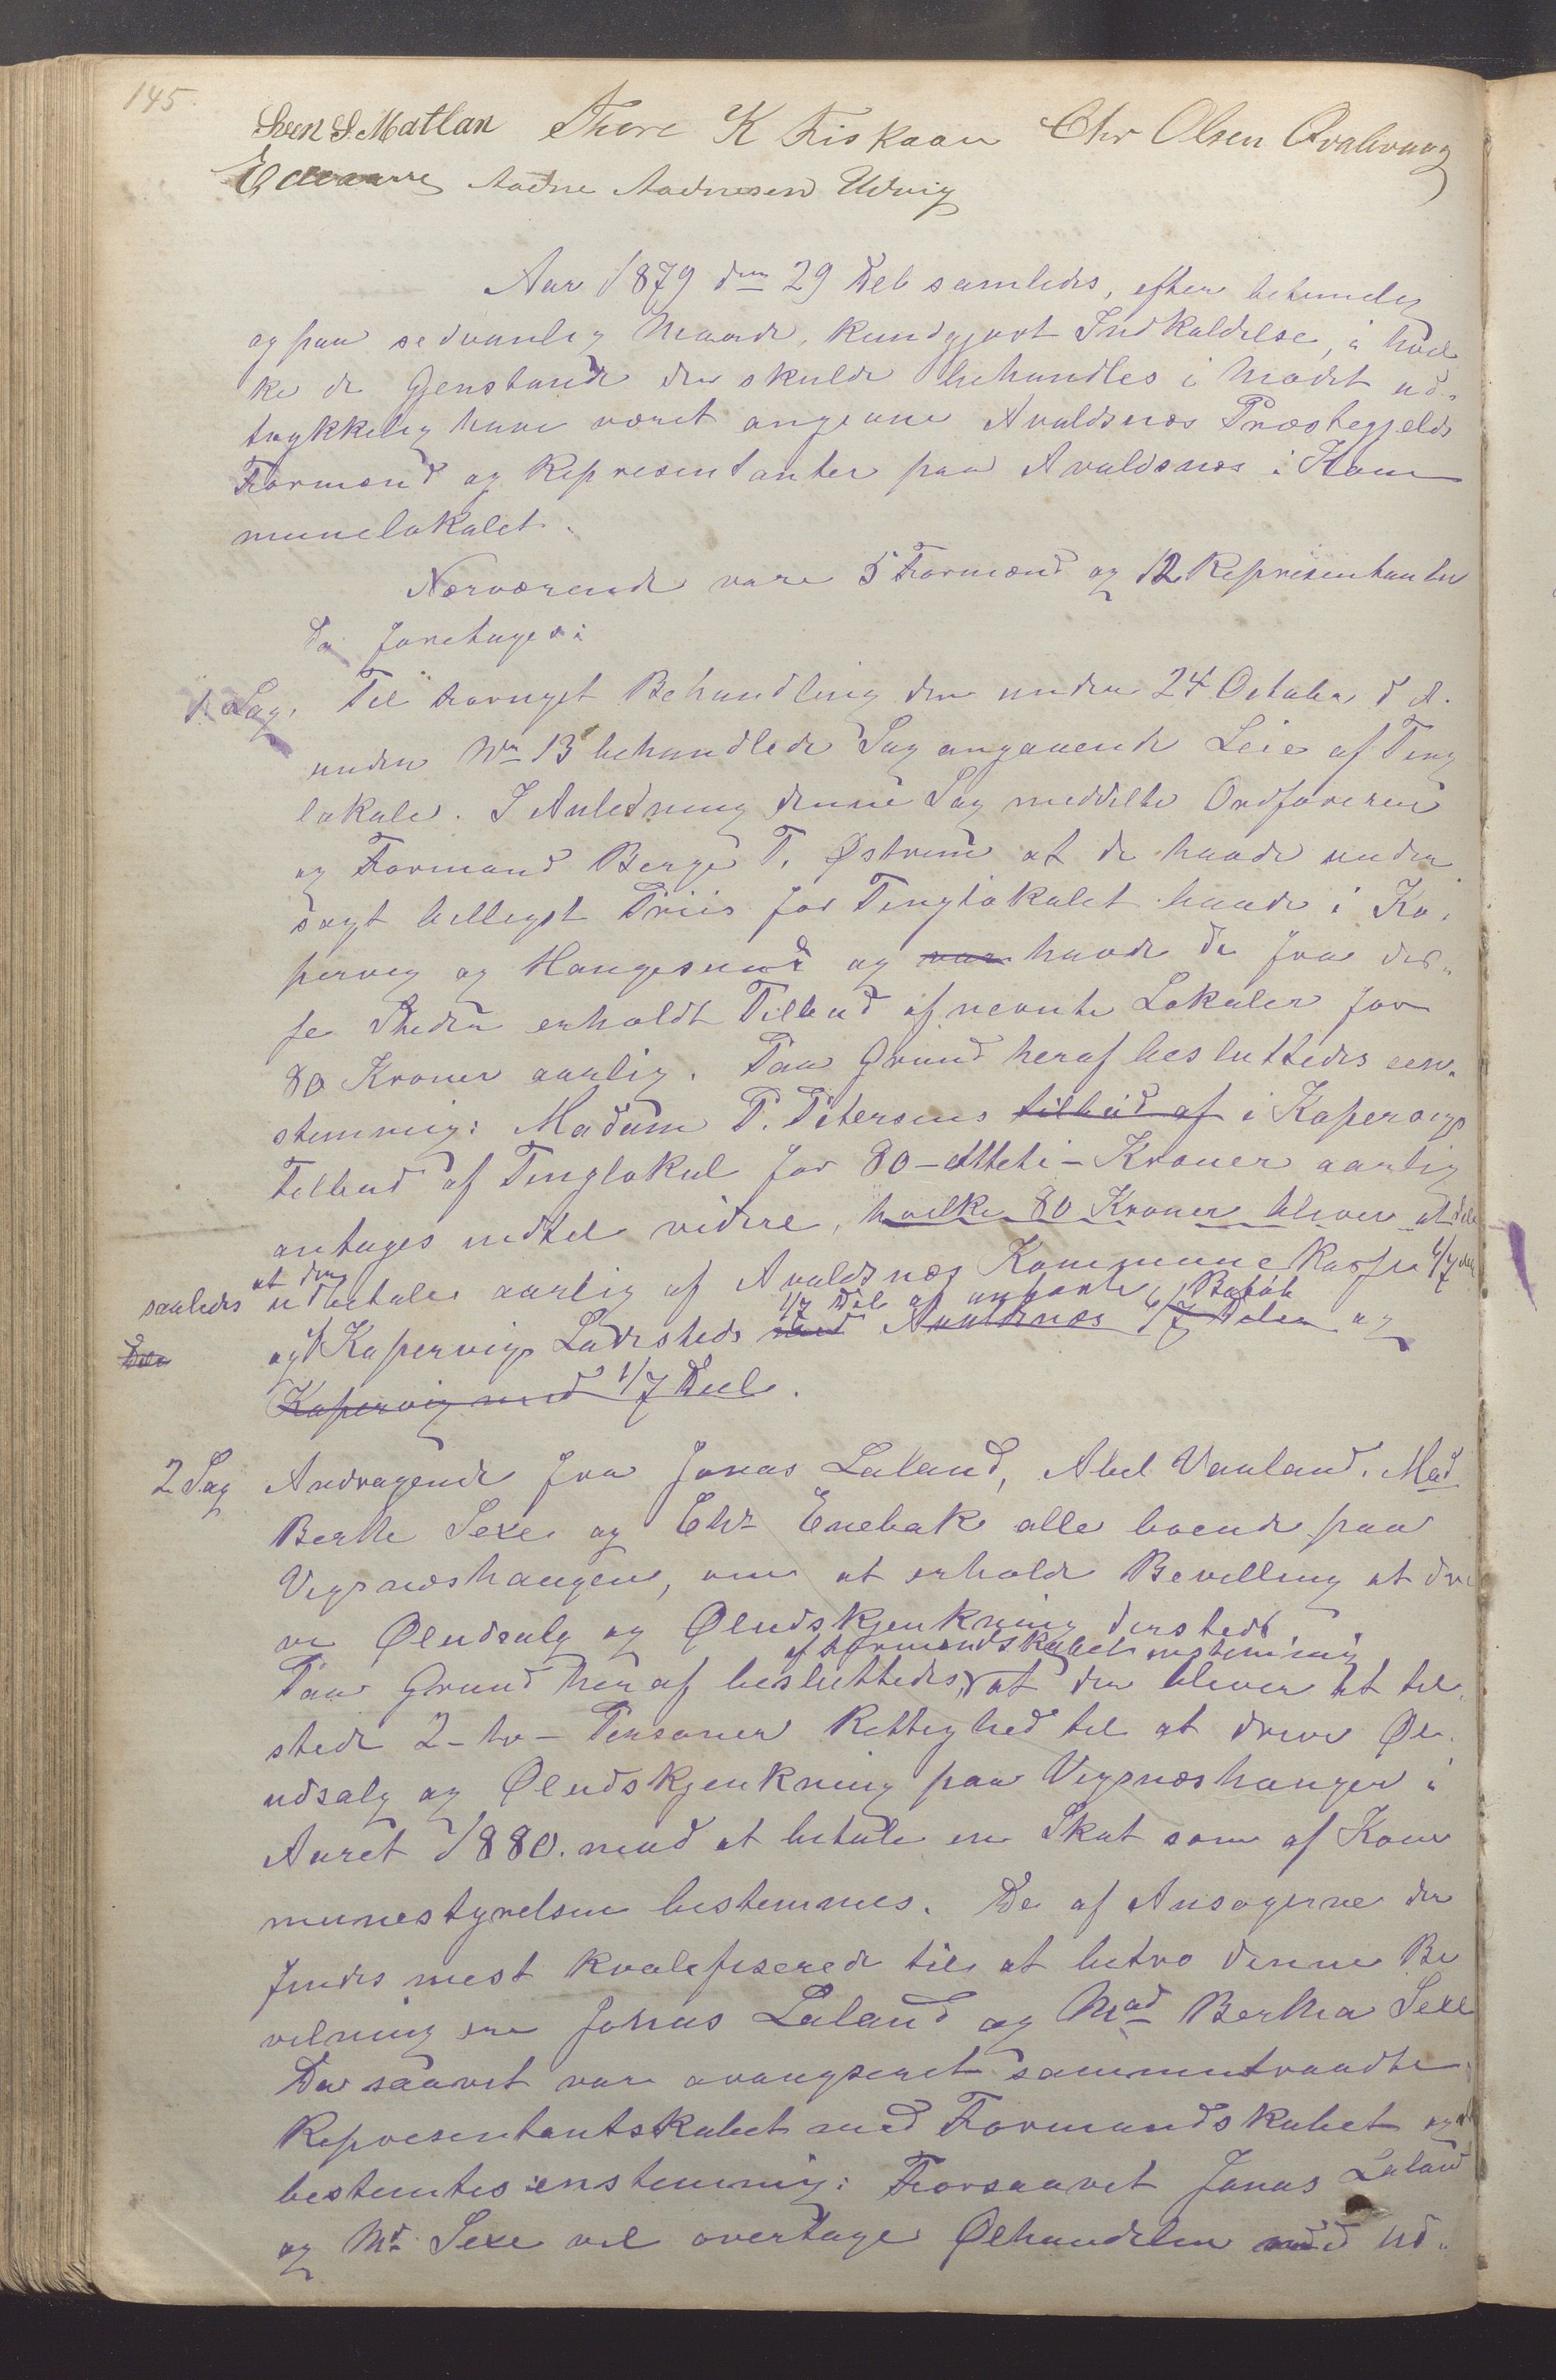 145.
Sven S Matlan Thore K Fiskaaen Chr Olsen Qvalevaag
Aadne Aadnesen Udvig
Aar 1879 den 29 Deb samledes, efter betimelig
og paa sedvanlig Maade, kundgjort Indkaldelse, i hvil
ke de Gjenstande der skulde behandles i Mødet ud-
trykkelig have været angivne Avaldsnes Præstegjelds
Formænd og Representanter paa Avaldsnes i Kom
munelokalet.
Nærværende vare 5 Formænd og 12 Representanter
Da foretages:
1. Sag. Til fornyet Behandling den under 24 October d. A.
under No 13 behandlede Sag angaaende Leie af Ting
lokale. I Anledning denne Sag meddelte Ordføreren
og Formand Berge T. Østrem at de havde under
søgt billigst Priis for Tinglokalet baade i Ko,
pervig og Haugesund og var havde de fra dis-
se Steder erholdt Tilbud af nevnte Lokaler for
80 Kroner aarlig. Paa Grund heraf besluttedes een,
stemmig: Madam P. Petersens tilbud af i Kopervigs
Tilbud af Tinglokal for 80-Otteti-Kroner aarlig
antages indtil videre, hvilke 80 Kroner bliver at dele
saaledes at der udbetales aarlig af Avaldsnes Kommunekasse 6/7 del
1/7 Del af anførte Beløb
Dele og af Kopervigs Ladested med Avaldsnes 6/7 Deler og
Kopervig med 1/7 Deel.
2 Sag Andragende fra Jonas Laland, Abel Vauland, Mad
Berthe Sexe og Chr Enebak alle boende paa
Vigsneshaugen, om at erholde Bevilling at dri
ve Øludsalg og Øludskjenkning dersteds
af Formandskabet enstemmig
Paa Grund heraf besluttedes, at der bliver at til,
stede 2-to-Personer Rettighed til at drive Øl-
udsalg og Øludskjenkning paa Vigsneshaugen i
Aaret 1880. mod at betale en Skat som af Kom
munestyrelsen bestemmes. De af Ansøgerne der
findes mest kvalefiserede til at betro denne Be
vilning ere Jonas Laland og Mad Bertha Sexe
Da saavet var arangseret sammentraadte
Representantskabet med Formandskabet og det
bestemtes enstemmig: Forsaavet Jonas Laland
og Md Sexe vil overtage Ølhandelen med ud-